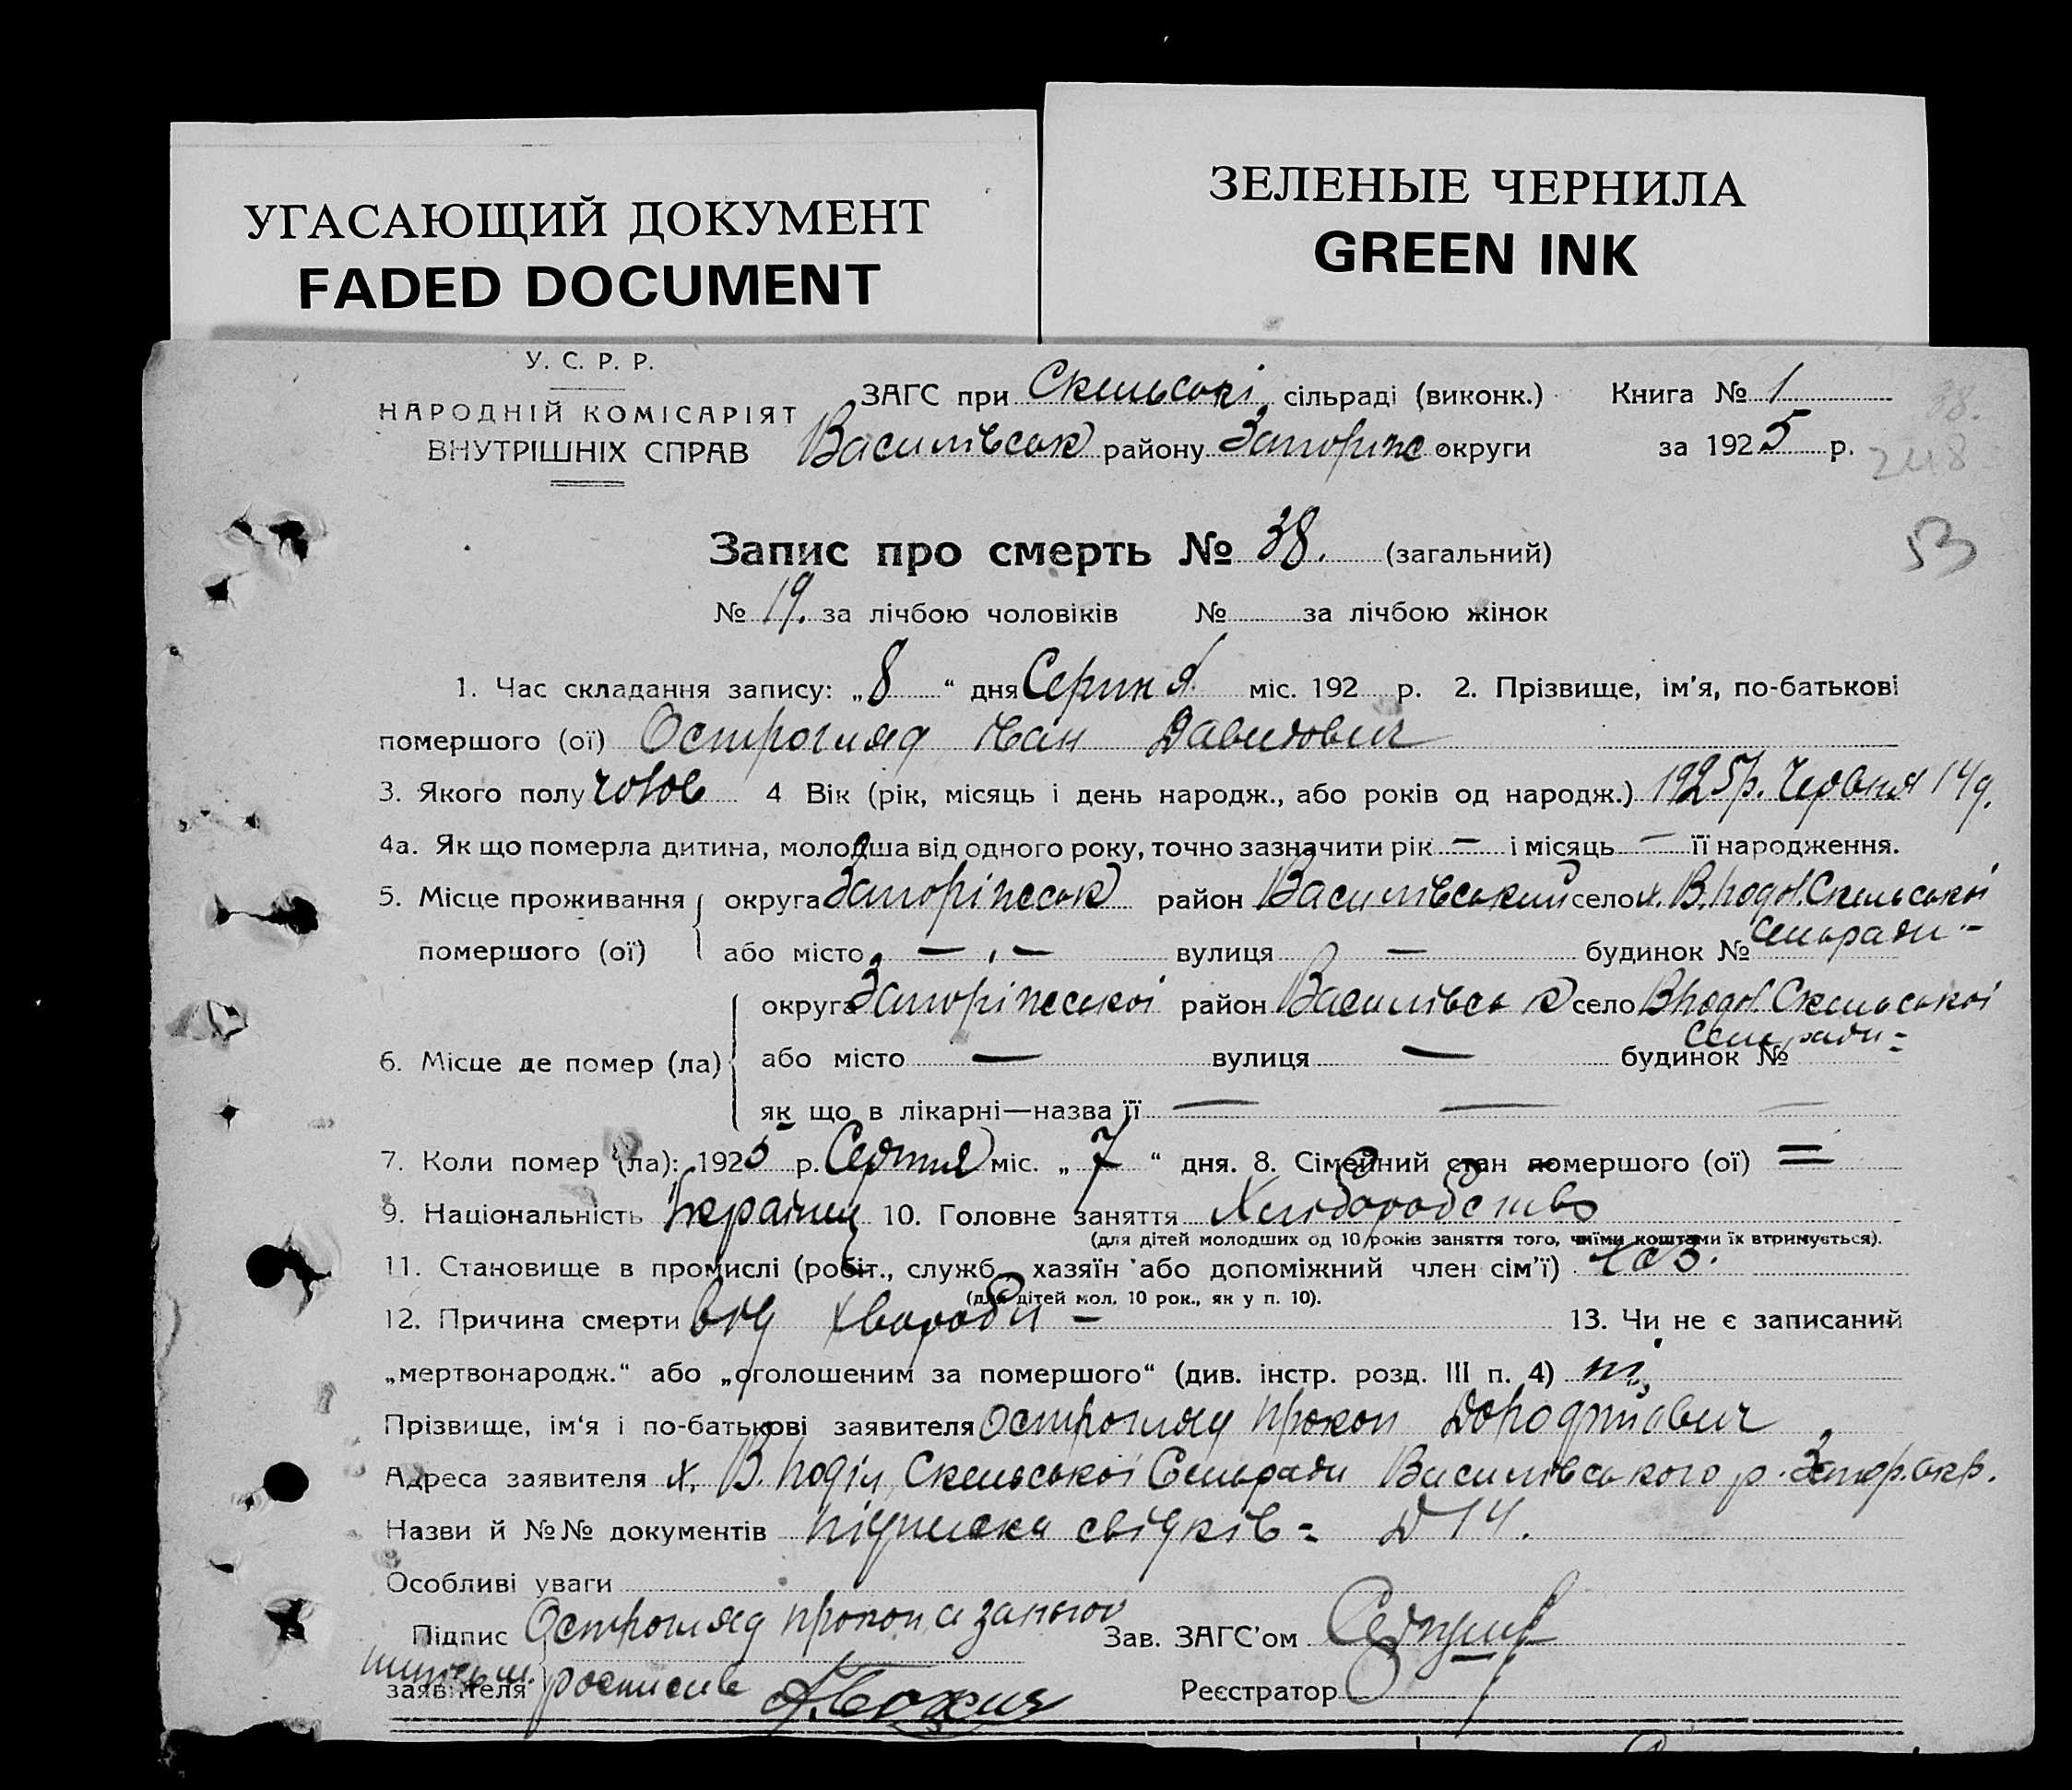 УГАСАЮЩИЙ ДОКУМЕНТ
FADED DOCUMENT
ЗЕЛЕНЫЕ ЧЕРНИЛА
GREEN INK
У. С. Р. Р.
НАРОДНІЙ КОМІСАРІЯТ
ВНУТРІШНІХ СПРАВ
ЗАГС при Скельські сільраді (виконк.) Книга № 1
Василівськ району Запоріж округи за 1925 р.
38.
248
53
Запис про смерть № 38. (загальний)
№ 19. за лічбою чоловіків № за лічбою жінок
1. Час складання запису: „8“ дня Серпня міс. 192 р. 2. Прізвище, ім'я, по-батькові
помершого (ої) Острогляд Іван Давидович
3. Якого полу чолов 4 Вік (рік, місяць і день народж., або років од народж.) 1925р. Червня 14д.
4а. Як що померла дитина, молодша від одного року, точно зазначити рік — і місяць — її народження.
5. Місце проживання помершого (ої) округа Запоріжськ район Василівський село х. В. Подол. Скельської
або місто — , — вулиця — будинок № Сельради -
6. Місце де помер (ла) округа Запоріжської район Василівськ село В Подол. Скельської
або місто — вулиця — будинок № Сельради =
як що в лікарні—назва її — — —
7. Коли помер (ла): 1925 р. Серпня міс. „7“ дня. 8. Сімейний стан помершого (ої) =
9. Національність Українец 10. Головне заняття Хлібородство
(для дітей молодших од 10 років заняття того, чиїми коштами їх втримується).
11. Становище в промислі (робіт., служб., хазяїн або допоміжний член сім'ї) хаз.
(для дітей мол. 10 рок., як у п. 10).
12. Причина смерти від хвороби - 13. Чи не є записаний
„мертвонародж.“ або „оголошеним за помершого“ (див. інстр. розд. III п. 4) ні,
Прізвище, ім'я і по-батькові заявителя Острогляд Прокоп
Адреса заявителя х. В. Поділ, Скельської Сельради Василівського р. Запор. окр.
Назви й №№ документів підписка свідків = Д 14.
Особливі уваги
Підпис заявителя Острогляд Прокоп а за нього
росписив
Зав. ЗАГС'ом
Реєстратор